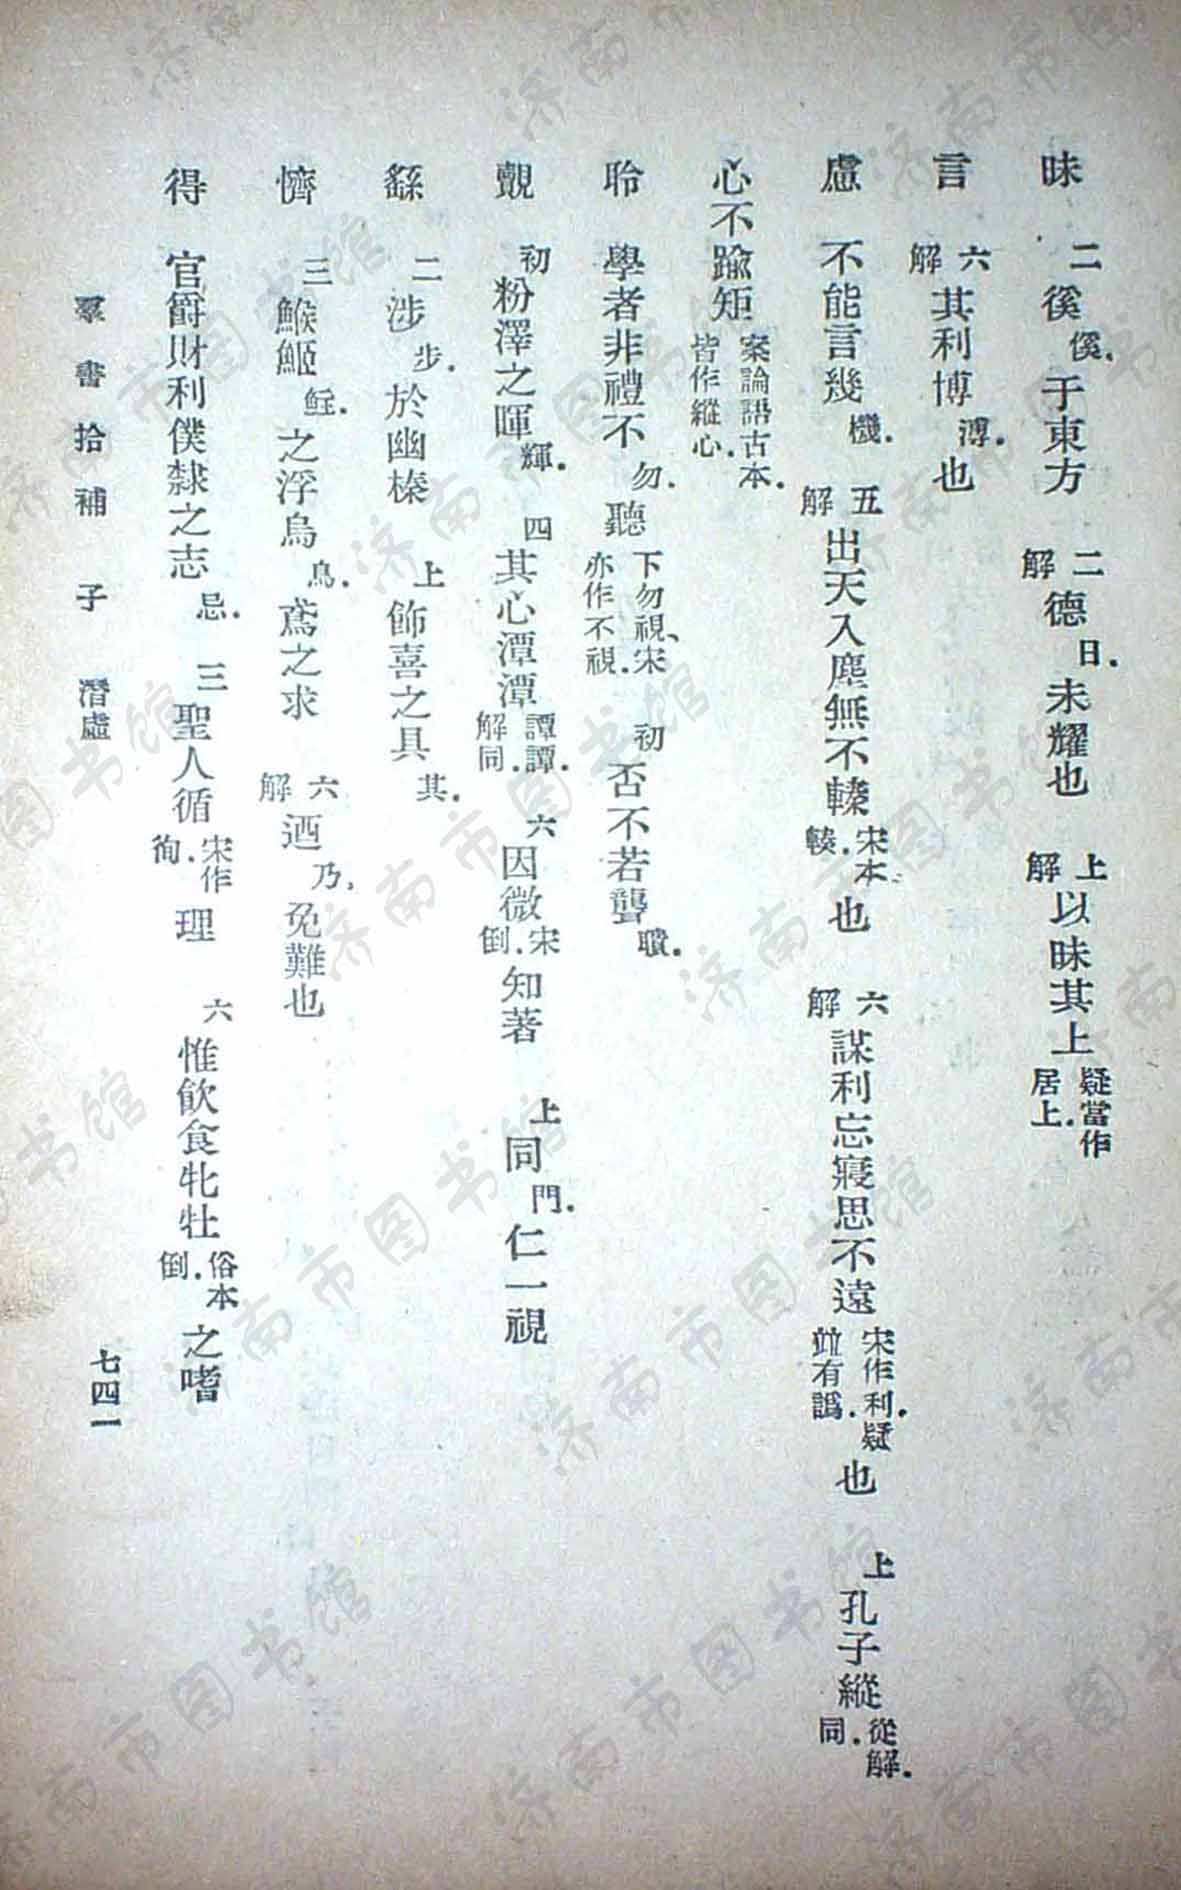 昧　二徯傒.于東方　二解德日.未耀也　上解以昧其上疑當作居上.
言　六解其利博溥.也
慮　不能言幾機.　五解出天入塵無不轃宋本、輳.也　六解謀利忘寢思不遠宋作利.疑竝有譌.也　上孔子縱從.解同.
心不踰矩案論語古本.皆作縱心.
聆　學者非禮不勿.聽下勿視、宋亦作不視.　初否不若聾聵.
覿　初粉澤之暉輝.　四其心潭潭譚譚.解同.　六因微宋倒.知著　上同門.仁一視
繇　二涉步.於幽榛　上飾喜之具其.
懠　三鯸䱌䱇.之浮烏鳥.鳶之求　六解迺乃、免難也
得　官爵財利僕隸之志忌.　三聖人循宋作徇.理　六惟飲食牝牡俗本倒.之嗜
羣書拾補　子　潛虛　七四一